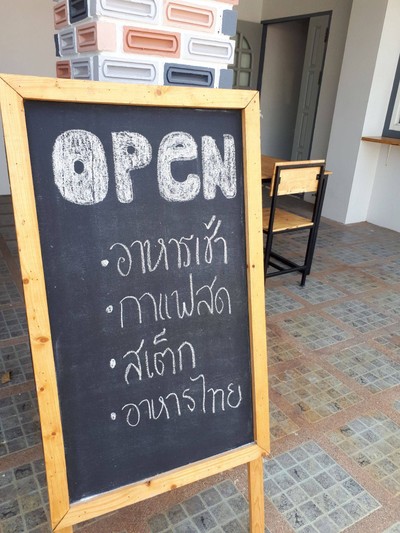 OPEN
• อาหารเช้า
• กาแฟสด
• สเต็ก
• อาหารไทย